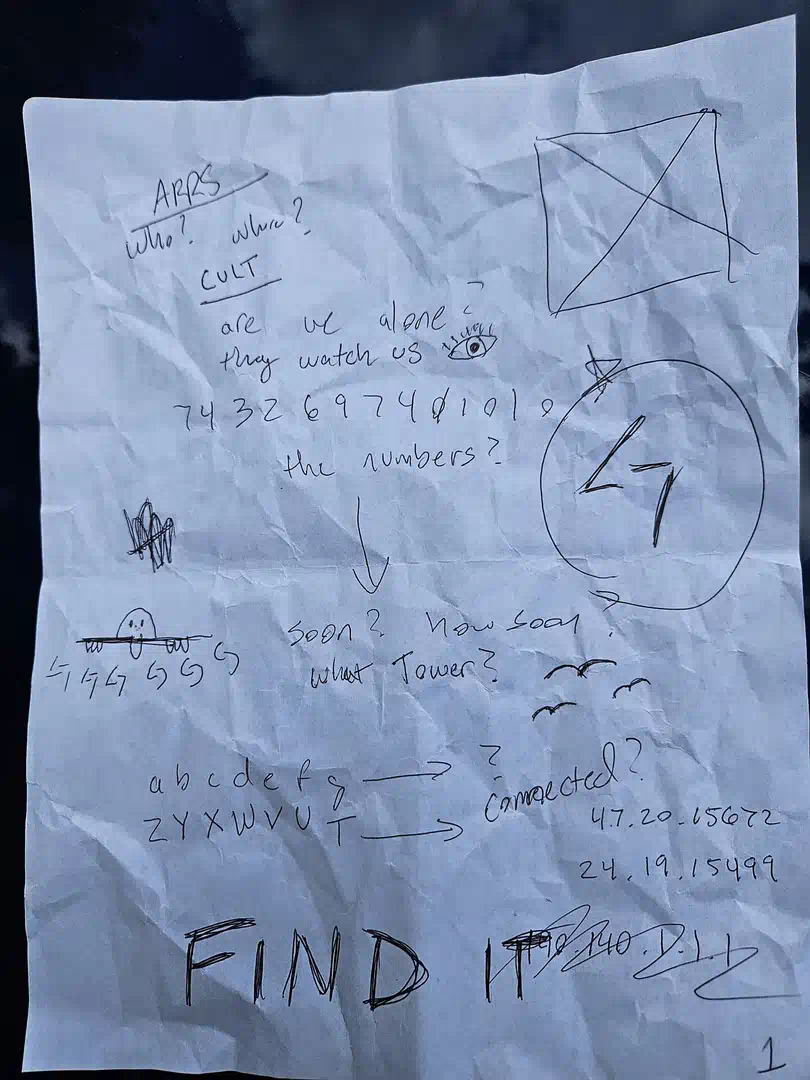 ARRS
Who? where?
CULT
are we alone?
they watch us
74 32 6 9 7 4 0 1 0 1 0
the numbers?
Soon? how soon?
what Tower?
a b c d e f g ?
Z Y X W V U T
Connected?
47.20.15672
24.19.15499
FIND IT
1